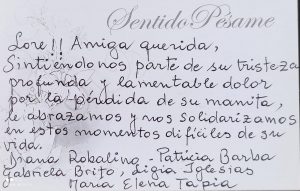 Sentido Pésame
Lore!! Amiga querida,
Sintiéndonos parte de su tristeza
profunda y lamentable dolor
por la pérdida de su mamita,
le abrazamos y nos solidarizamos
en estos momentos difíciles de su
vida.
Diana Robalino - Patricia Barba
Gabriela Brito, Ligia Iglesias
María Elena Tapia